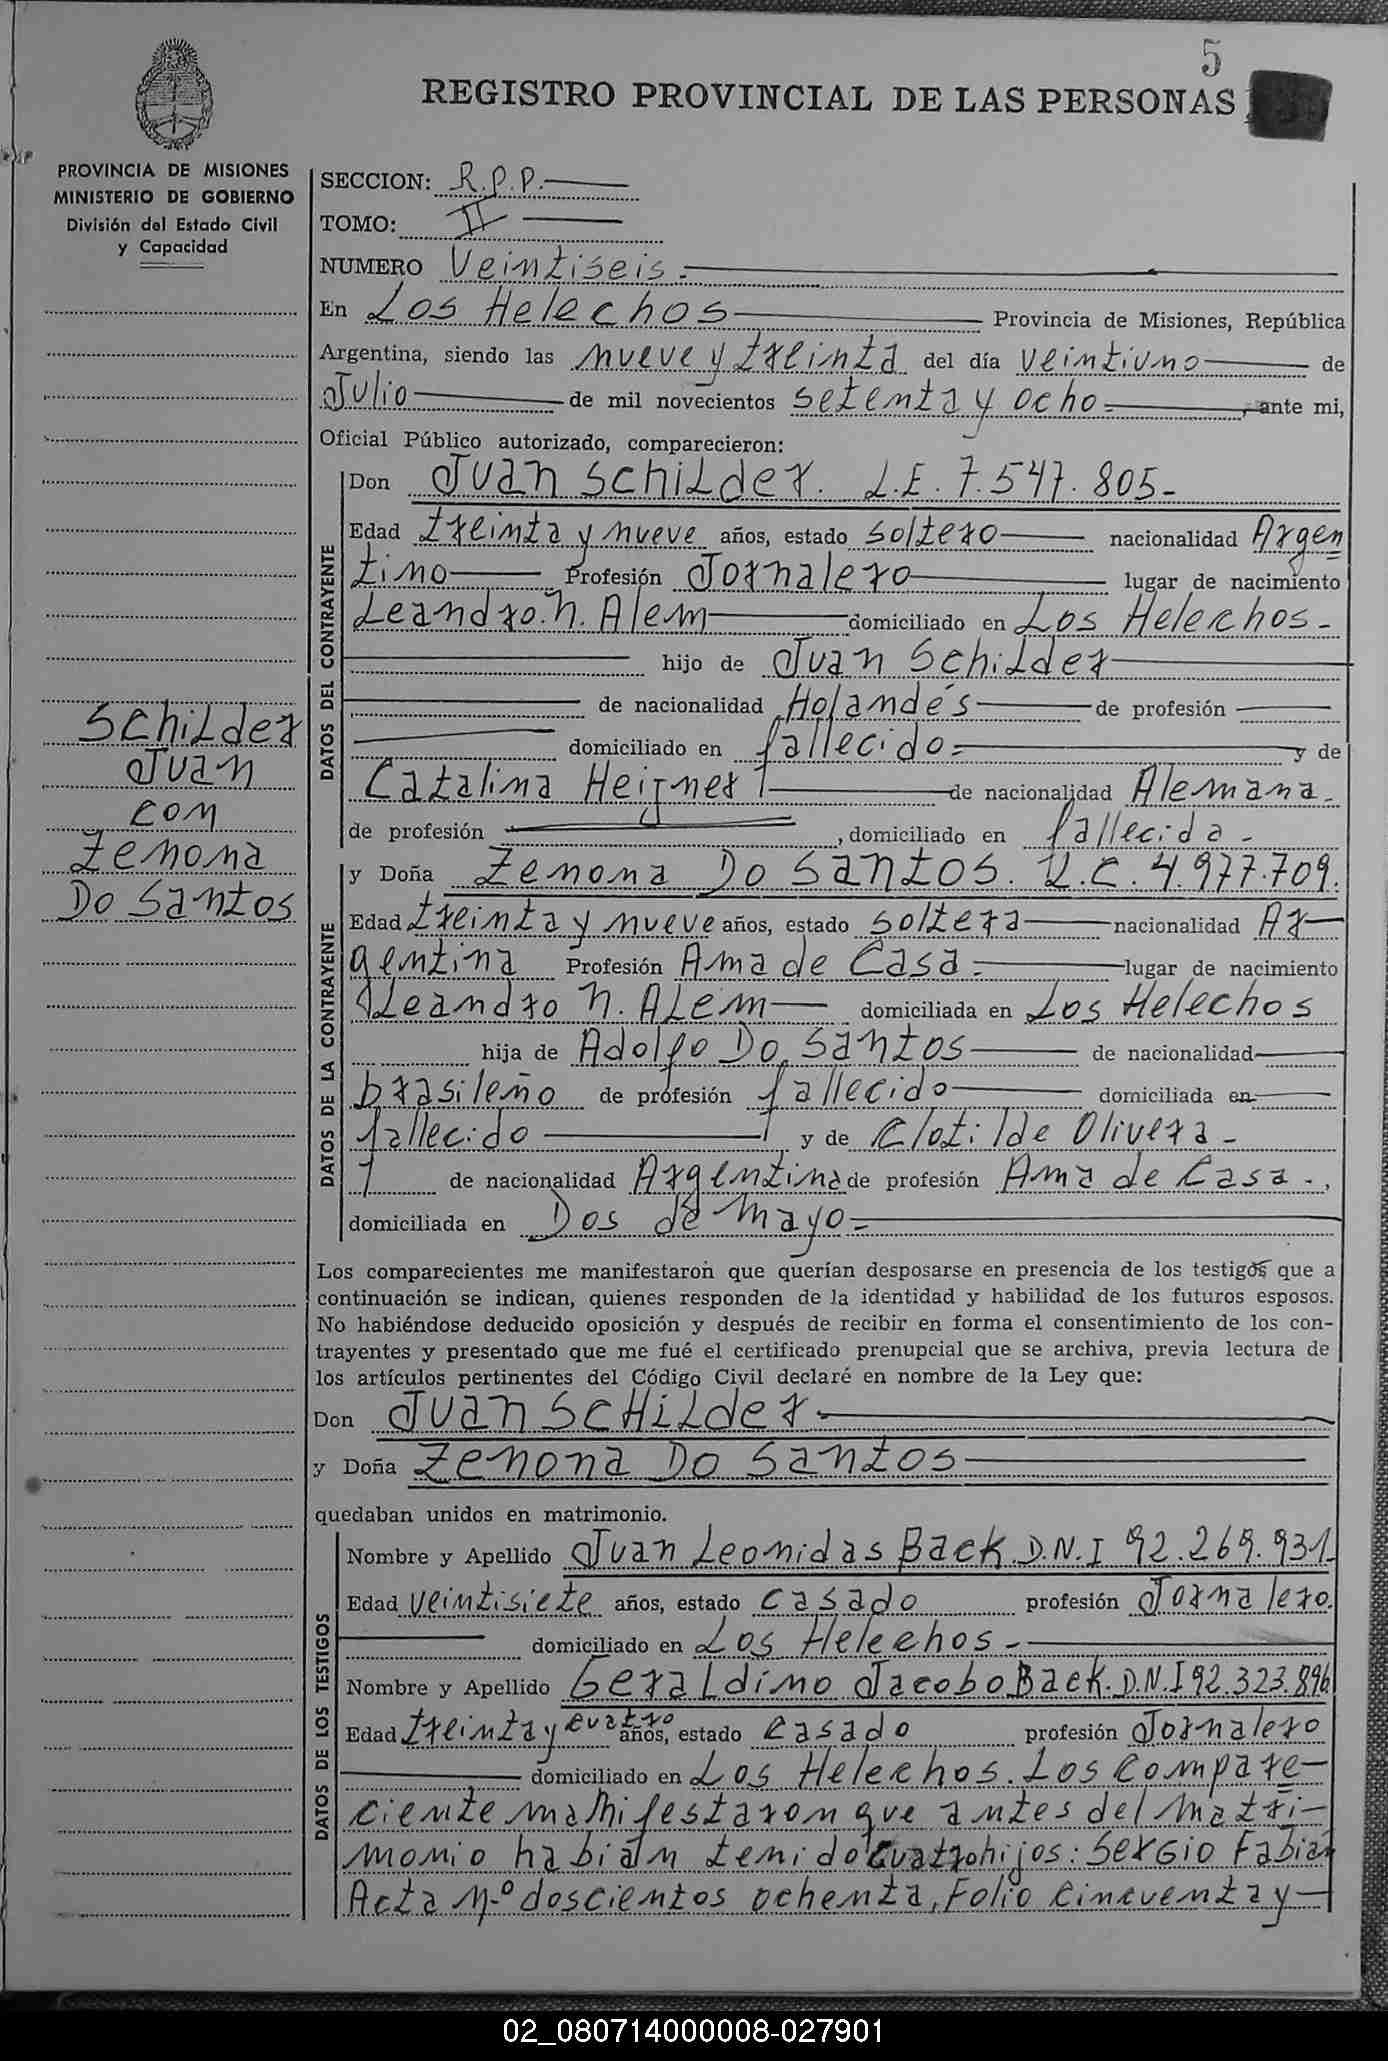 5
REGISTRO PROVINCIAL DE LAS PERSONAS
PROVINCIA DE MISIONES
MINISTERIO DE GOBIERNO
División del Estado Civil
y Capacidad
SECCION: R.P.P.
TOMO: II
NUMERO Veintiseis.
En Los Helechos Provincia de Misiones, República
Argentina, siendo las nueve y treinta del día veintiuno de
Julio de mil novecientos setenta y ocho , ante mi,
Oficial Público autorizado, comparecieron:
DATOS DEL CONTRAYENTE
Don Juan Schilder. L.E. 7.547.805-
Edad treinta y nueve años, estado soltero nacionalidad Argen
tino Profesión Jornalero lugar de nacimiento
Leandro. N. Alem domiciliado en Los Helechos-
hijo de Juan Schilder
de nacionalidad Holandés de profesión
domiciliado en fallecido y de
Catalina de nacionalidad Alemana-
de profesión , domiciliado en fallecida-
Schilder
Juan
con
Zenona
Do Santos
DATOS DE LA CONTRAYENTE
y Doña Zenona Do Santos. L.C. 4.977.709.
Edad treinta y nueve años, estado soltera nacionalidad Ar-
gentina Profesión Ama de Casa. lugar de nacimiento
Leandro N. Alem domiciliada en Los Helechos
hija de Adolfo Do Santos de nacionalidad
brasileño de profesión fallecido domiciliada en
fallecido y de Clotilde Olivera-
de nacionalidad Argentina de profesión Ama de Casa.,
domiciliada en Dos de Mayo-
Los comparecientes me manifestaron que querían desposarse en presencia de los testigos que a
continuación se indican, quienes responden de la identidad y habilidad de los futuros esposos.
No habiéndose deducido oposición y después de recibir en forma el consentimiento de los con-
trayentes y presentado que me fué el certificado prenupcial que se archiva, previa lectura de
los artículos pertinentes del Código Civil declaré en nombre de la Ley que:
Don Juan Schilder.
y Doña Zenona Do Santos
quedaban unidos en matrimonio.
DATOS DE LOS TESTIGOS
Nombre y Apellido Juan Leonidas Back D.N.I 92.269.931-
Edad veintisiete años, estado casado profesión Jornalero.
domiciliado en Los Helechos-
Nombre y Apellido Geraldino Jacobo Back. D.N.I 92.323.896
Edad treinta y cuatro años, estado casado profesión Jornalero
domiciliado en Los Helechos. Los compare-
ciente manifestaron que antes del matri-
monio habian tenido cuatro hijos: Sergio Fabian
Acta Nº doscientos ochenta, Folio cincuenta y
02_080714000008-027901